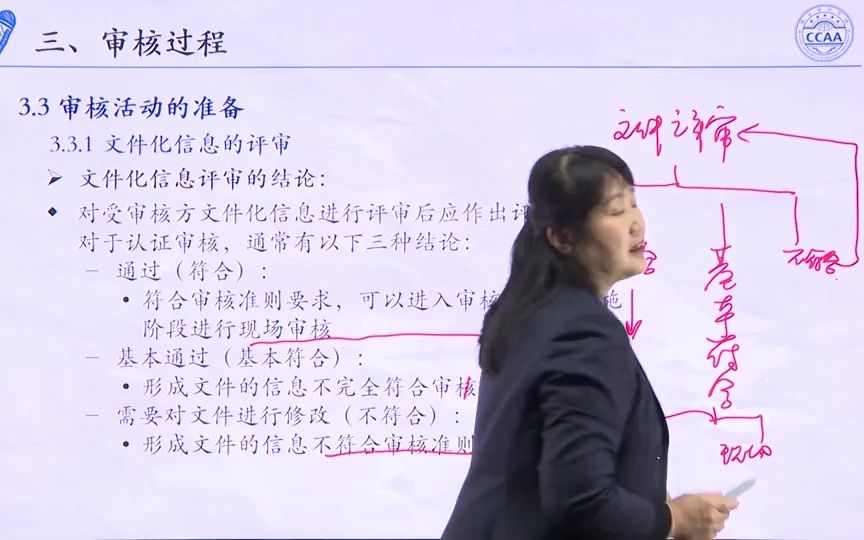 三、审核过程
CCAA
3.3 审核活动的准备
3.3.1 文件化信息的评审
➤ 文件化信息评审的结论：
◆ 对受审核方文件化信息进行评审后应作出评
对于认证审核，通常有以下三种结论：
– 通过（符合）：
• 符合审核准则要求，可以进入审核 施
阶段进行现场审核
– 基本通过（基本符合）：
• 形成文件的信息不完全符合审核
– 需要对文件进行修改（不符合）：
• 形成文件的信息不符合审核准则
文件评审
合
基本符合
不符合
现场